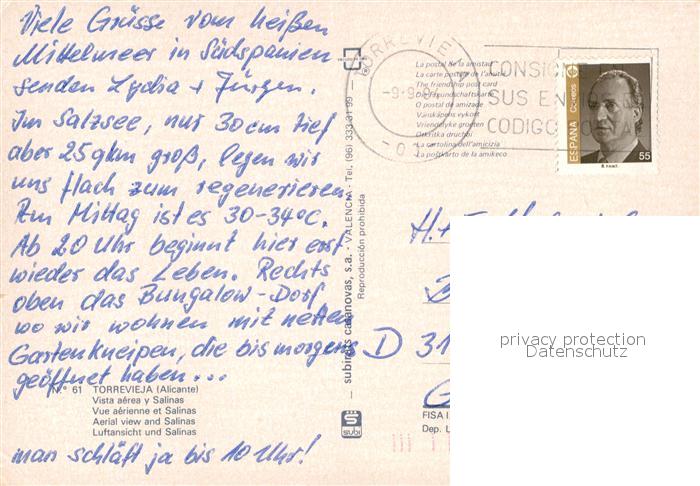 Viele Grüsse vom heißen
Mittelmeer in Südspanien
senden Lydia + Jürgen.
Im Salzsee, nur 30cm tief
aber 25 qkm groß, legen wir
uns flach zum regenerieren.
Zum Mittag ist es 30-34°C.
Ab 20 Uhr beginnt hier erst
wieder das Leben. Rechts
oben das Bungalow-Dorf
wo wir wohnen mit netten
Gartenkneipen, die bis morgens
geöffnet haben...
Nº 61 TORREVIEJA (Alicante)
Vista aérea y Salinas
Vue aérienne et Salinas
Aerial view and Salinas
Luftansicht und Salinas
man schläft ja bis 10 Uhr!
subirats casanovas, s.a. · VALENCIA · Tel. (96) 333 31 99
Reproducción prohibida
subi
La postal de la amistad
La carte postale de l'amitié
The friendship post card
Die Freundschaftskarte
O postal de amizade
Vänskapens vykort
Vriendelyke groeten
Otkritka druchbi
La cartolina dell'amicizia
La poŝtkarto de la amikeco
TORREVIE
-9.9.
CONSIGN
SUS EN
CODIGO
ESPAÑA
Correos
55
H.+
D 31
privacy protection
Datenschutz
FISA I
Dep. L